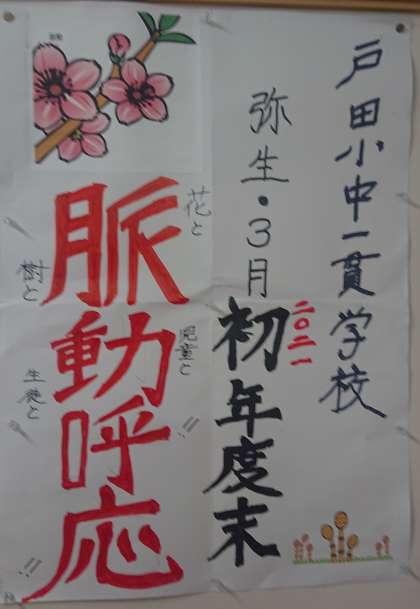 戸田小中一貫学校
弥生・3月
二〇二一
初年度末
花と
児童と!!
脈動呼応
樹と
生徒と!!